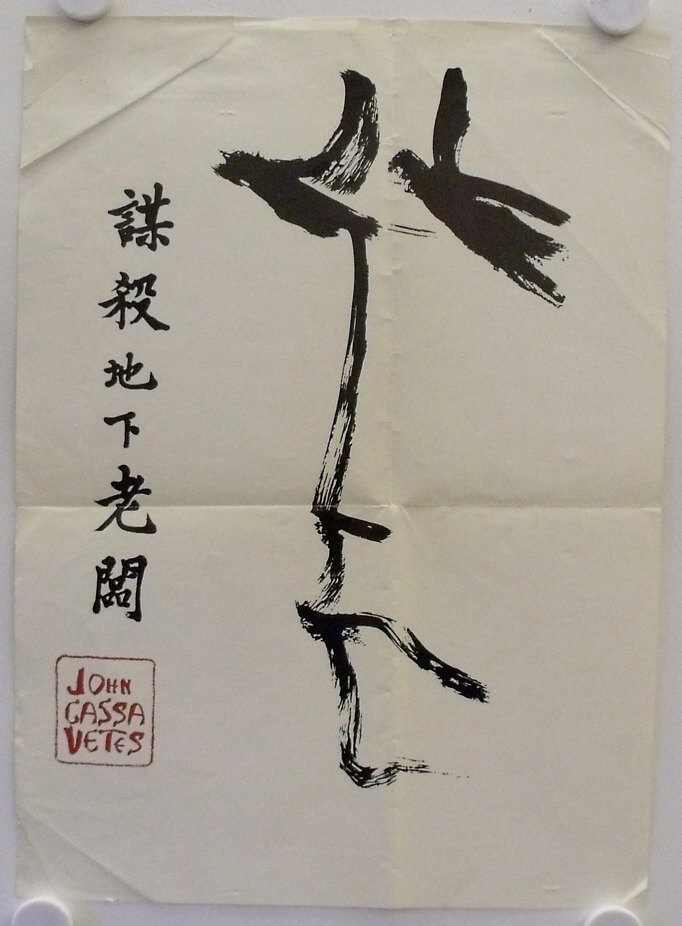 謀殺地下老闆
JOHN
CASSA
VETES